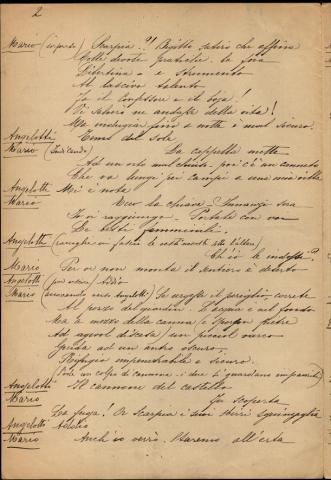 2
Mario (in parte) Scarpia?! Bigotto satiro che affina
Colle devote pratiche la foia
Libertina e strumento
Al lascivo talento
Fa il confessore e il boja!
Di salvio ne andasse della vita!
Ma indugiar fino a notte è mal sicuro.
Angelotti Temo del sole
Mario (indicando) La cappella mette
Ad un orto mal chiuso, poi c'è un canneto
Che va lungi pei campi a una mia villa
Angelotti M'è nota
Mario Ecco la chiave. Innanzi sera
Io vi raggiungo. Portate con voi
Le vesti femminili.
Angelotti (raccoglie in fascio le vestimenta sotto l'altare)
Ch'io le indossi?
Mario Per or non monta il sentiero è deserto
Angelotti (per uscire) Addio
Mario (accorrendo verso Angelotti) Se urgesse il periglio, correte
Al pozzo del giardin. L'acqua è nel fondo
Ma a mezzo della canna
Ad agevol discesa un picciol varco
Guida ad un antro oscuro,
Rifugio impenetrabile e sicuro.
(Ode un colpo di cannone i due si guardano
Angelotti Il cannone del castello
Mario Fu scoperta
La fuga! Or Scarpia i suoi sbirri sguinzaglia
Angelotti Addio
Mario Anch'io verrò. Staremo all'erta